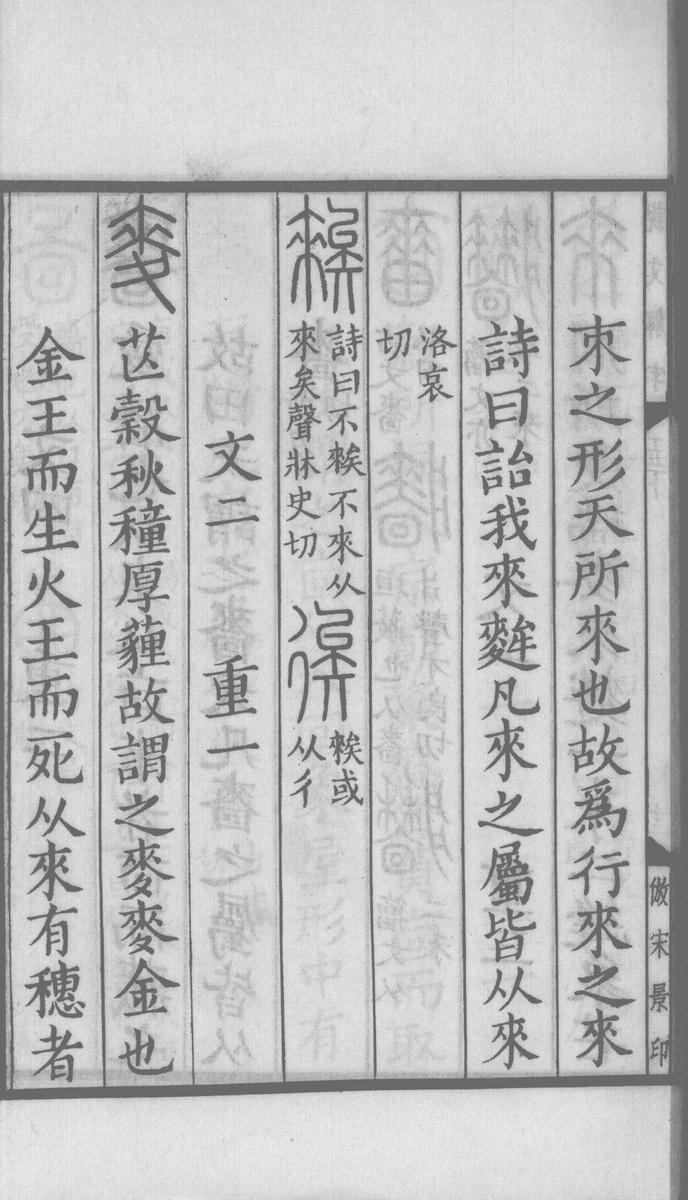 朿之形天所來也故爲行來之來
詩曰詒我來麰凡來之屬皆从來
洛哀
切
詩曰不䅘不來从
來矣聲牀史切
䅘或
从彳
文二 重一
芒穀秋穜厚薶故謂之麥麥金也
金王而生火王而死从來有穗者
倣宋景印